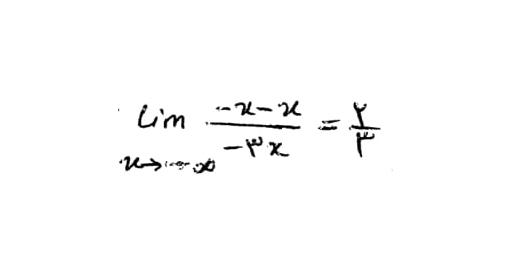 lim_{x→-∞} (-x-x)/(-۳x) = ۲/۳